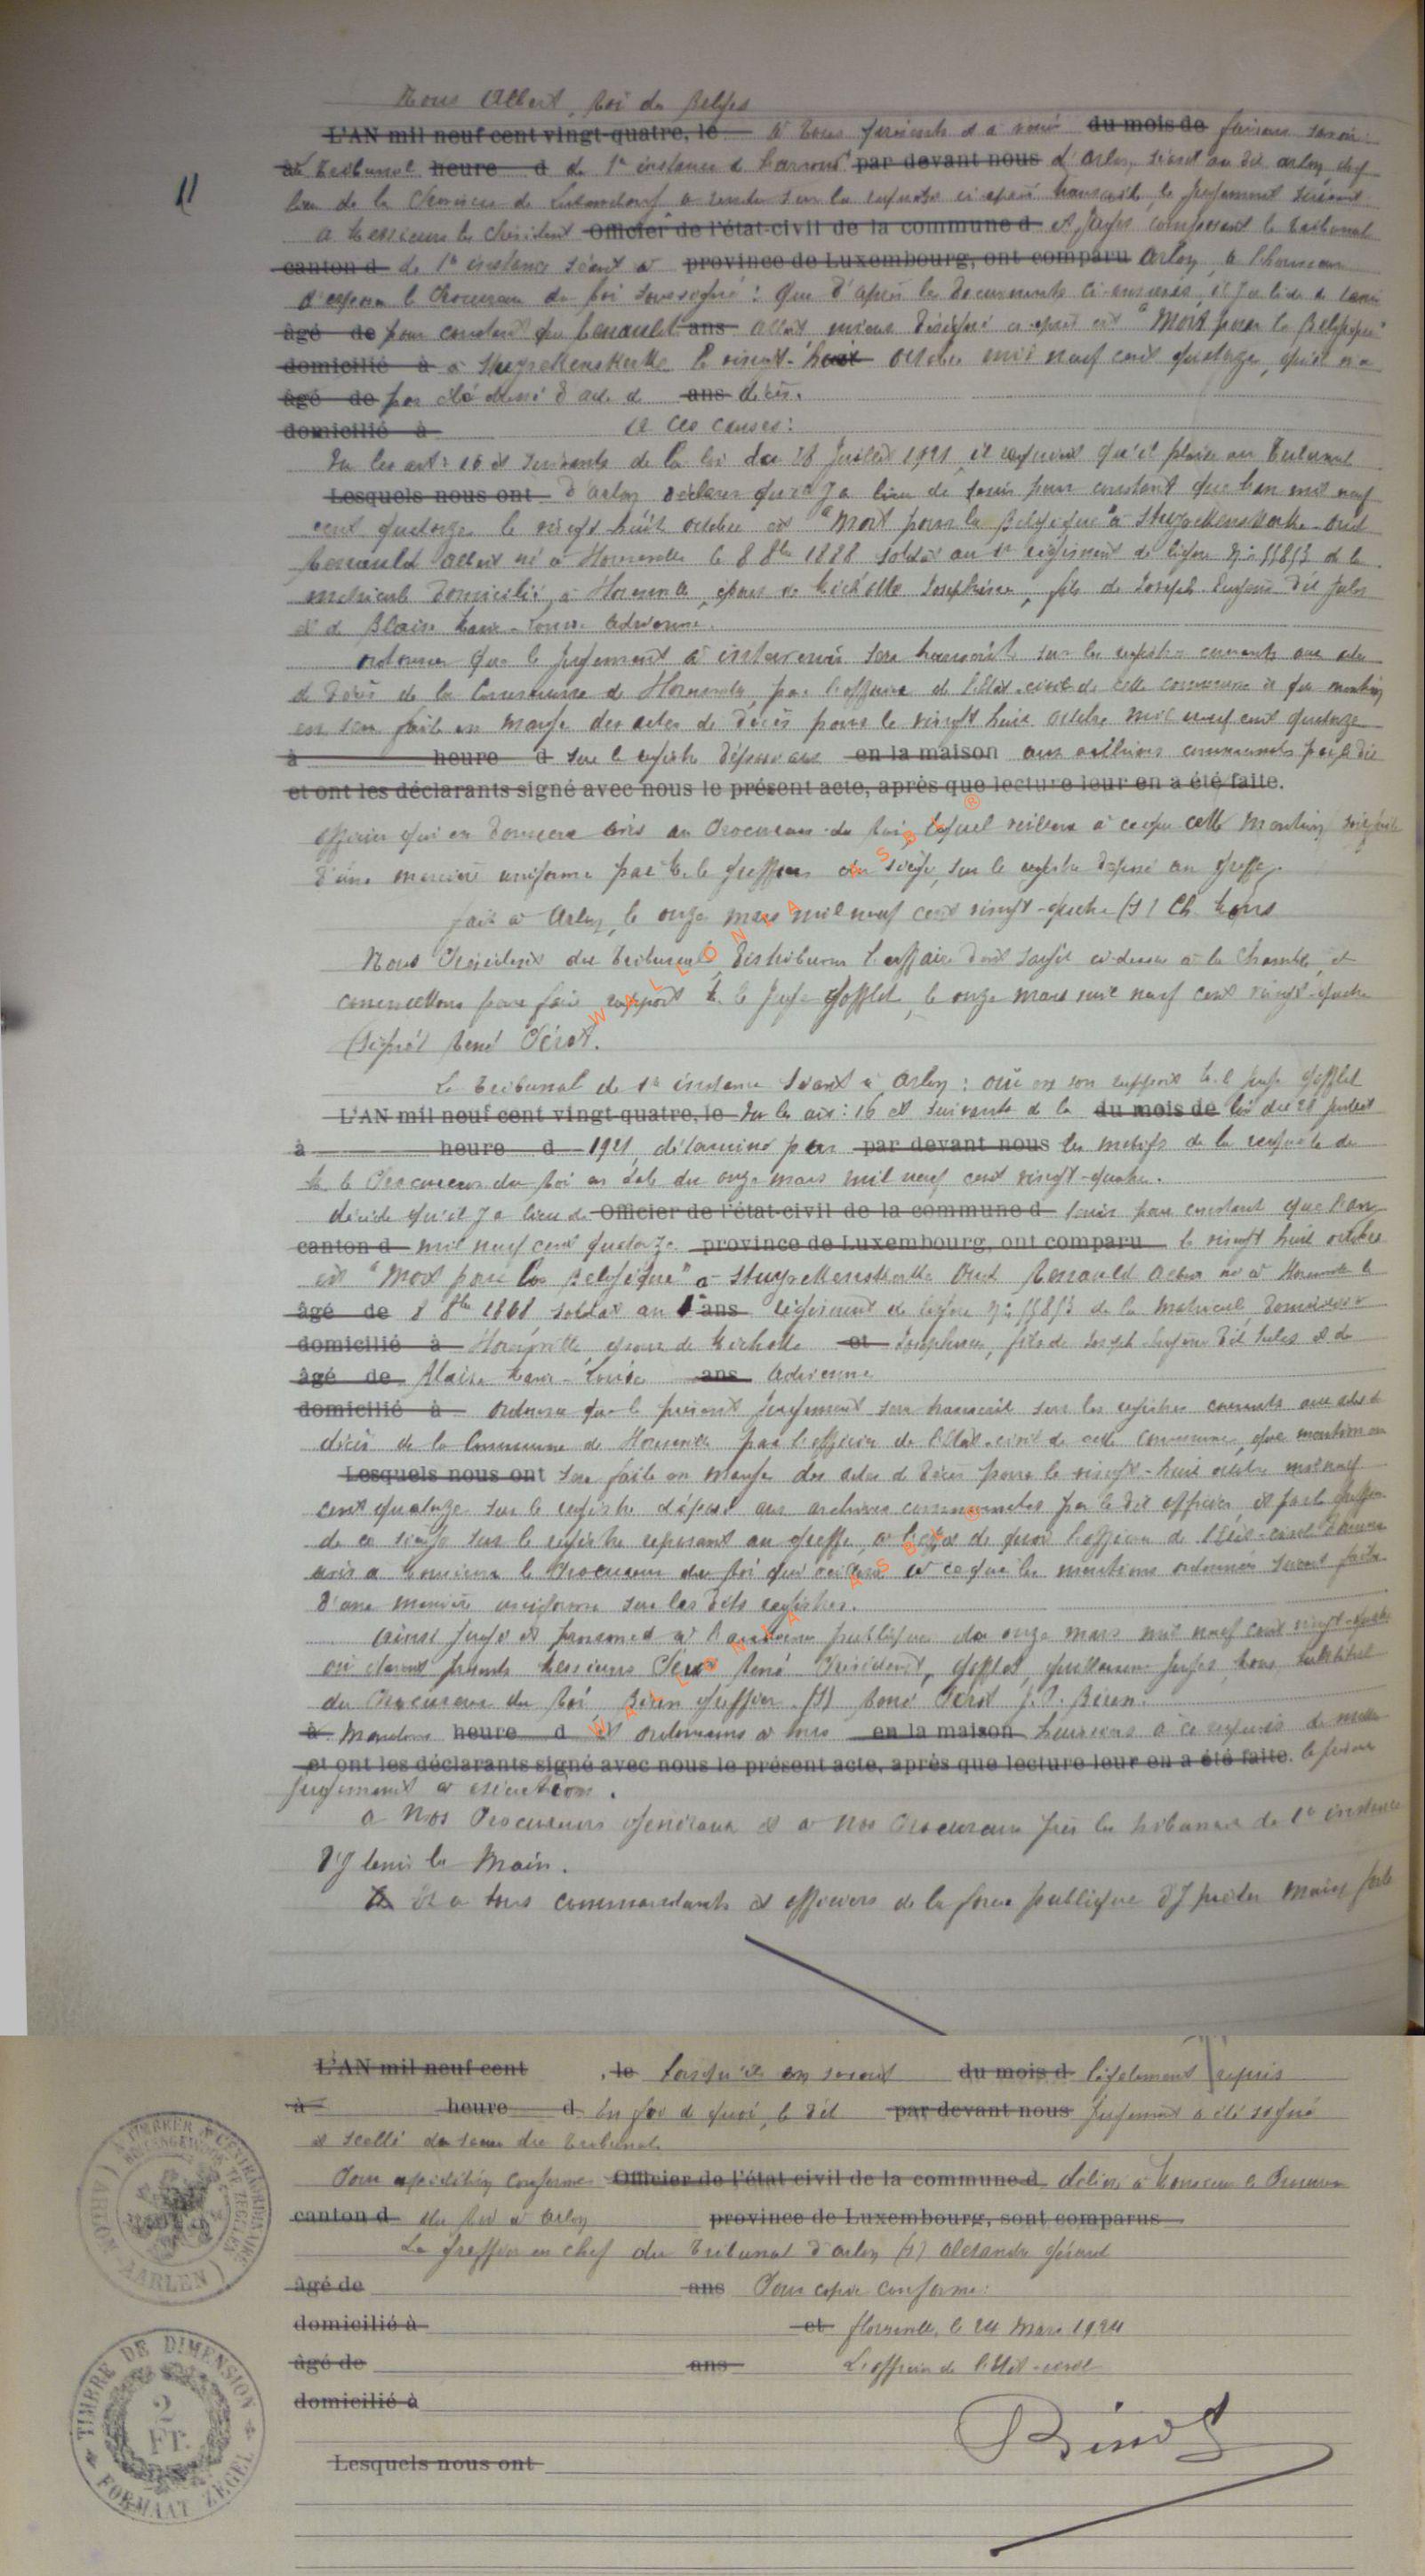 Nous Albert, Roi des Belges
L'AN mil neuf cent vingt-quatre, le à tous présents et à venir du mois de faisons savoir:
Tribunal heure d de 1re instance d par devant nous d'Arlon, séant au dit Arlon, chef
lieu de la Province de Luxembourg a rendu sur la requête ci-après transcrite, le jugement suivant
A Messieurs les Président Officier de l'état-civil de la commune d et Juges composant le tribunal
canton d de 1re instance séant à province de Luxembourg, ont comparu Arlon, a l'honneur
d'exposer le Procureur du Roi soussigné: que d'après les documents ci-annexés, il y a lieu de tenir
âgé de pour constant que Renauld ans Albert mieux désigné ci-après est "Mort pour la Belgique"
domicilié à à Stuyvekenskerke le vingt-huit octobre mil neuf cent quatorze, qu'il n'a
âgé de pas été dressé d'acte de ans décès.
domicilié à A ces causes:
Vu les art: 16 et suivants de la loi du 28 Juillet 1921, il requiert qu'il plaise au Tribunal
Lesquels nous ont d'Arlon déclarer qu'il y a lieu de tenir pour constant que l'an mil neuf
cent quatorze le vingt huit octobre est "Mort pour la Belgique" à Stuyvekenskerke
Renauld Albert né à le 8 8bre 1888 soldat au régiment de ligne n: 55853 de la
matricule domicilié, à époux de Michotte Joséphine, fils de Joseph-Eugène dit Jules
et de Blaise Marie-Louise Adrienne.
ordonner que le jugement à intervenir sera transcrit sur les registres courants aux actes
de décès de la Commune de par l'officier de l'état-civil de cette commune et que mention
en sera faite en marge des actes de décès pour le vingt huit octobre mil neuf cent quatorze
à heure d sur le registre déposé aux en la maison aux archives communales par le dit
et ont les déclarants signé avec nous le présent acte, après que lecture leur en a été faite.
officier qui en donnera avis au Procureur du Roi, lequel veillera à ce que cette mention soit faite
d'une manière uniforme par M. le greffier du siège, sur le registre déposé au greffe.
fait à Arlon, le onze mars mil neuf cent vingt-quatre (s) Ch.
Nous Président du Tribunal, distribuons l'affaire dont s'agit ci-dessus à la Chambre, et
commettons pour faire rapport M. le Juge Gofflot, le onze mars mil neuf cent vingt-quatre
(signé) René Pérot.
Le Tribunal de 1re instance séant à Arlon: ouï en son rapport M. le juge Gofflot
L'AN mil neuf cent vingt-quatre, le Vu les art: 16 et suivants de la du mois de loi du 28 juillet
à heure d 1921, déterminé par par devant nous les motifs de la requête de
M. le Procureur du Roi en date du onze mars mil neuf cent vingt-quatre.
décide qu'il y a lieu de Officier de l'état-civil de la commune d tenir pour constant que l'an
canton d mil neuf cent quatorze province de Luxembourg, ont comparu le vingt huit octobre
est "Mort pour la Belgique" à Stuyvekenskerke Renauld Albert né à le
âgé de 8 8bre 1888 soldat au ans régiment de ligne n: 55853 de la matricule, domicilié
domicilié à époux de Michotte et Joséphine, fils de Joseph-Eugène dit Jules et de
âgé de Blaise Marie-Louise ans Adrienne
domicilié à ordonne que le présent jugement sera transcrit sur les registres courants aux actes de
décès de la Commune de par l'officier de l'état-civil de cette commune, que mention en
Lesquels nous ont sera faite en marge des actes de décès pour le vingt-huit octobre mil neuf
cent quatorze sur le registre déposé aux archives communales par le dit officier, et par le greffier
de ce siège sur le registre reposant au greffe, à l'effet de quoi l'officier de l'état-civil donnera
avis à Monsieur le Procureur du Roi qui veillera à ce que les mentions ordonnées soient faites
d'une manière uniforme sur les dits registres.
Ainsi jugé et prononcé à l'audience publique du onze mars mil neuf cent vingt-quatre
où étaient présents Messieurs Pérot René Président, Gofflot, juges, substitut
du Procureur du Roi, greffier (s) René Pérot
à Mandons heure d Et ordonnons à tous en la maison huissiers à ce requis de mettre
et ont les déclarants signé avec nous le présent acte, après que lecture leur en a été faite. le présent
jugement à exécution.
A Nos Procureurs généraux et à Nos Procureurs près les tribunaux de 1re instance
d'y tenir la Main.
Et à tous commandants et officiers de la force publique d'y prêter main forte
L'AN mil neuf cent , le lorsqu'ils en seront du mois d légalement requis
à heure d En foi de quoi, le dit par devant nous jugement a été signé
et scellé du sceau du tribunal.
Pour expédition conforme Officier de l'état civil de la commune d délivré à Monsieur le Procureur
canton d du Roi à Arlon province de Luxembourg, sont comparus
Le greffier en chef du Tribunal d'Arlon (s) Alexandre Gérard
âgé de ans Pour copie conforme:
domicilié à et le 24 Mars 1924
âgé de ans L'officier de l'état-civil
domicilié à
Lesquels nous ont
TIMBRE DE DIMENSION
2
Fr.
FORMAAT ZEGEL
WALLONIA ASBL ®
WALLONIA ASBL ®